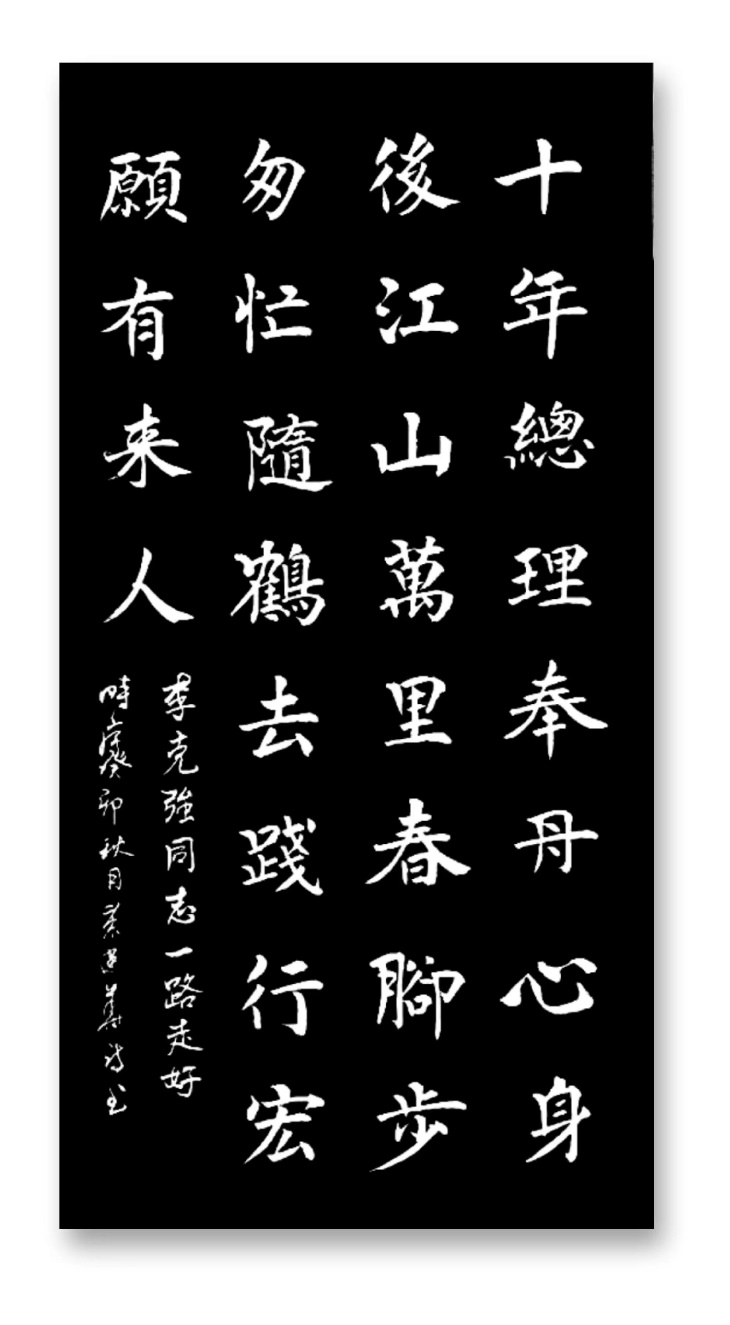 十年總理奉丹心身
後江山萬里春腳步
匆忙隨鶴去踐行宏
願有来人
李克強同志一路走好
時癸卯秋月